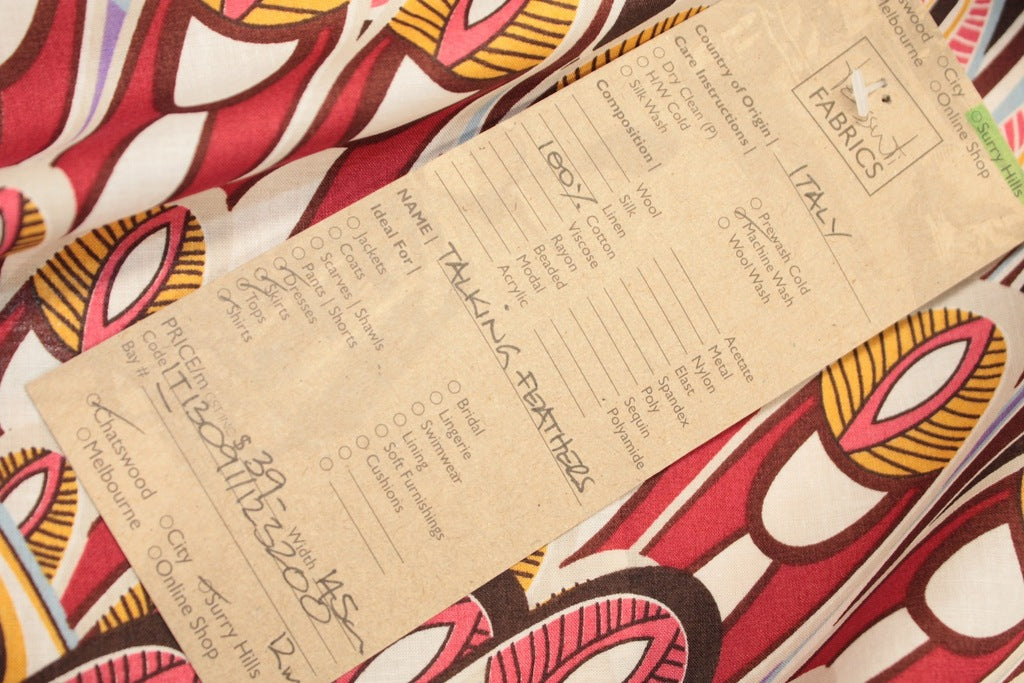 Chatswood
Melbourne
City
Online Shop
Surry Hills
FABRICS
Country of Origin | ITALY
Care Instructions |
Dry Clean (P)
H/W Cold
Silk Wash
Prewash Cold
Machine Wash
Wool Wash
Composition |
Wool
Silk
Linen
100% Cotton
Viscose
Rayon
Beaded
Modal
Acrylic
Acetate
Metal
Nylon
Elast
Spandex
Poly
Sequin
Polyamide
NAME | TALKING FEATHERS
Ideal For |
Jackets
Coats
Scarves | Shawls
Pants | Shorts
Dresses
Skirts
Tops
Shirts
Bridal
Lingerie
Swimwear
Lining
Soft Furnishings
Cushions
PRICE/m $39- Width 145cm
Code IT1309/1123200
Bay #
Chatswood
Melbourne
City
Online Shop
Surry Hills